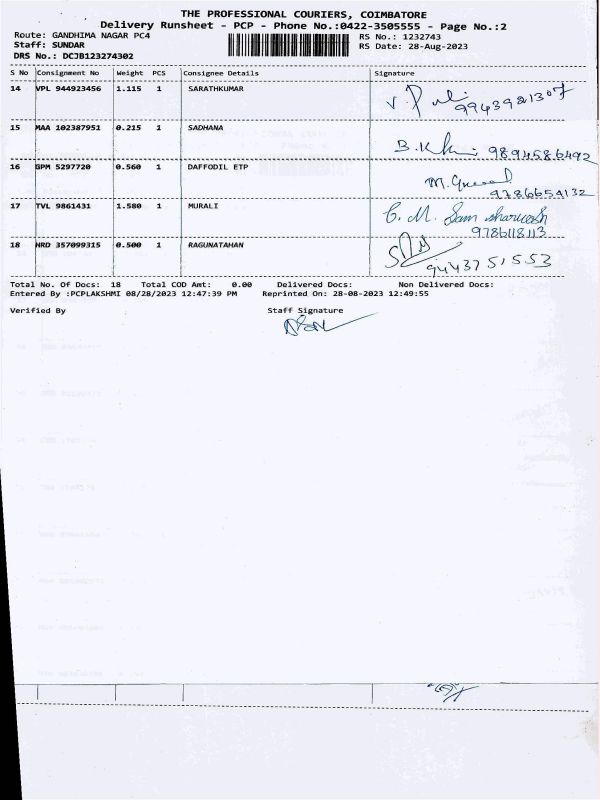 THE PROFESSIONAL COURIERS, COIMBATORE
Delivery Runsheet - PCP - Phone No.:0422-3505555 - Page No.:2
Route: GANDHIMA NAGAR PC4 RS No.: 1232743
Staff: SUNDAR RS Date: 28-Aug-2023
DRS No.: DCJB123274302
S No Consignment No Weight PCS Consignee Details Signature
14 VPL 944923456 1.115 1 SARATHKUMAR
9943921307
15 MAA 102387951 0.215 1 SADHANA
9894586492
16 GPM 5297720 0.560 1 DAFFODIL ETP
9786654132
17 TVL 9861431 1.580 1 MURALI C. M. Sam
9786118113
18 HRD 357099315 0.500 1 RAGUNATAHAN
9443751553
Total No. Of Docs: 18 Total COD Amt: 0.00 Delivered Docs: Non Delivered Docs:
Entered By :PCPLAKSHMI 08/28/2023 12:47:39 PM Reprinted On: 28-08-2023 12:49:55
Verified By Staff Signature